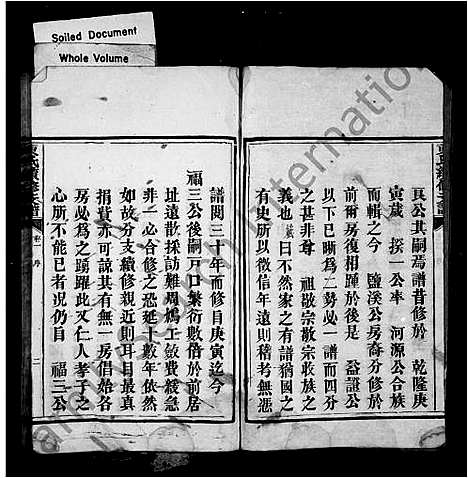 Soiled Document
Whole Volume
良公其嗣焉譜昔修於　乾隆庚
寅歲　探一公率　河源公合族
而輯之今　鹽溪公房裔分修於
前爾房復相踵於後是　益謚公
以下已斷為二勢必一譜而四分
之甚非尊　祖敬宗敬宗收族之
義也　曰不然家之有譜猶國之
有史所以徵信年遠則稽考無憑
譜閱三十年而修自庚寅迄今
福三公後嗣戶口繁衍數倍於前居
址遠散採訪難周鳩工斂費緩急
非一必合修之恐延十數年依然
如故分支續修親近則耳目最真
捐貲亦可諒其有無一房倡始各
房必為之踴躍此又仁人孝子之
心所不能已者況仍自　福三公
卷一
序
二